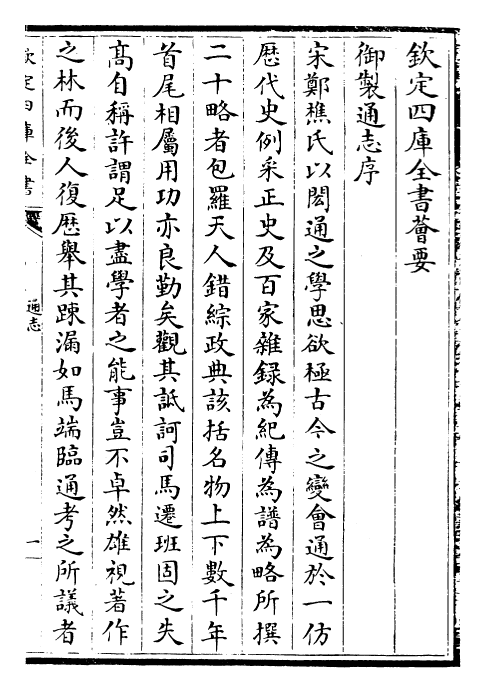 欽定四庫全書薈要
御製通志序
宋鄭樵氏以閎通之學思欲極古今之變會通於一仿
歴代史例采正史及百家雜録為紀傳為譜為略所撰
二十略者包羅天人錯綜政典該括名物上下數千年
首尾相屬用功亦良勤矣觀其詆訶司馬遷班固之失
髙自稱許謂足以盡學者之能事豈不卓然雄視著作
之林而後人復歴舉其踈漏如馬端臨通考之所議者
欽定四庫全書
通志
一